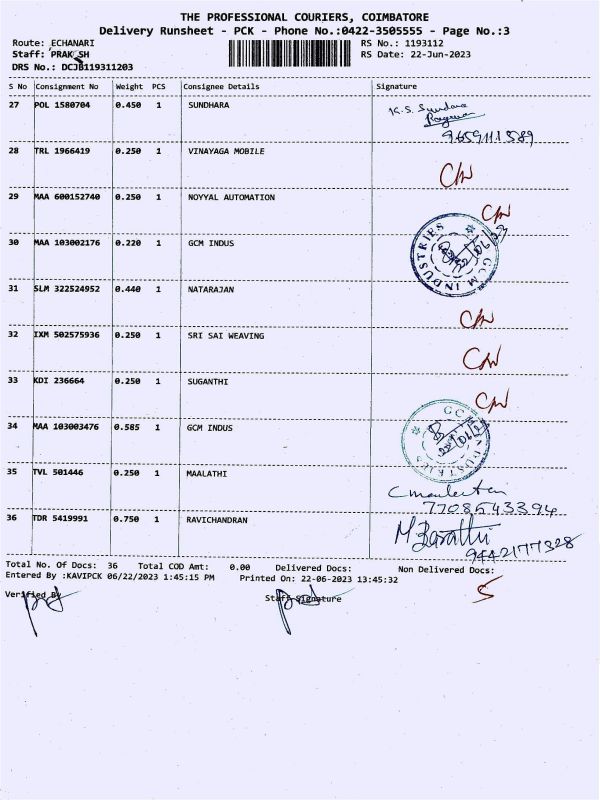 THE PROFESSIONAL COURIERS, COIMBATORE
Delivery Runsheet - PCK - Phone No.:0422-3505555 - Page No.:3
Route: ECHANARI
RS No.: 1193112
Staff: PRAKASH
RS Date: 22-Jun-2023
DRS No.: DCJB119311203
S No Consignment No Weight PCS Consignee Details Signature
27 POL 1580704 0.450 1 SUNDHARA K.S. Sundara
9659111589
28 TRL 1966419 0.250 1 VINAYAGA MOBILE
29 MAA 600152740 0.250 1 NOYYAL AUTOMATION
30 MAA 103002176 0.220 1 GCM INDUS GCM INDUSTRIES
31 SLM 322524952 0.440 1 NATARAJAN
32 IXM 502575936 0.250 1 SRI SAI WEAVING
33 KDI 236664 0.250 1 SUGANTHI
34 MAA 103003476 0.585 1 GCM INDUS GCM INDUSTRIES
35 TVL 501446 0.250 1 MAALATHI
7708543394
36 TDR 5419991 0.750 1 RAVICHANDRAN M. Barathi
9442177328
Total No. Of Docs: 36 Total COD Amt: 0.00 Delivered Docs: Non Delivered Docs: 5
Entered By :KAVIPCK 06/22/2023 1:45:15 PM Printed On: 22-06-2023 13:45:32
Verified By Staff Signature